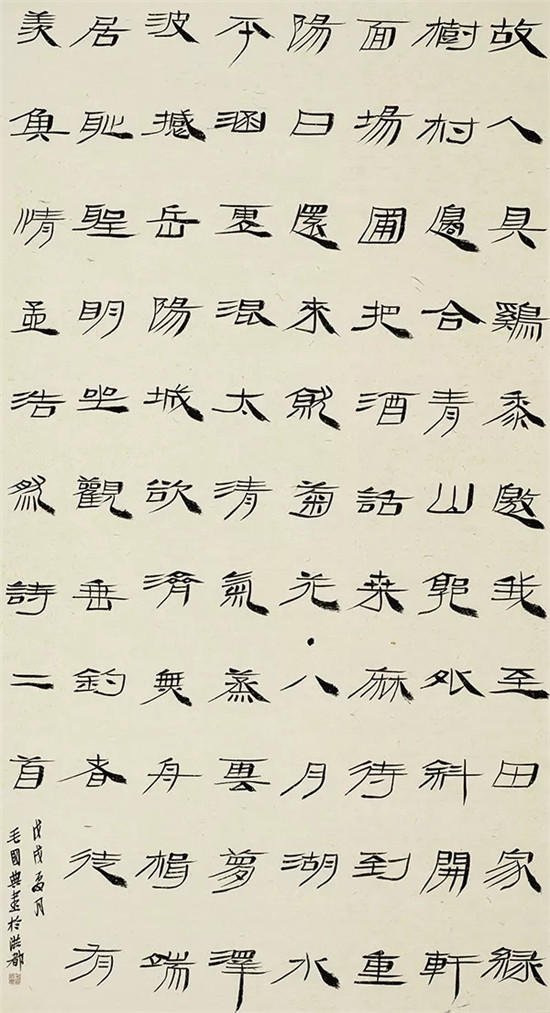 故人具鷄黍邀我至田家緑
樹村邊合青山郭外斜開軒
面場圃把酒話桑麻待到重
陽日還來就菊花八月湖水
平涵虛混太清氣蒸雲夢澤
波撼岳陽城欲濟無舟楫端
居恥聖明坐觀垂釣者徒有
羨魚情孟浩然詩二首
戊戌夏月
毛國典書於洪都